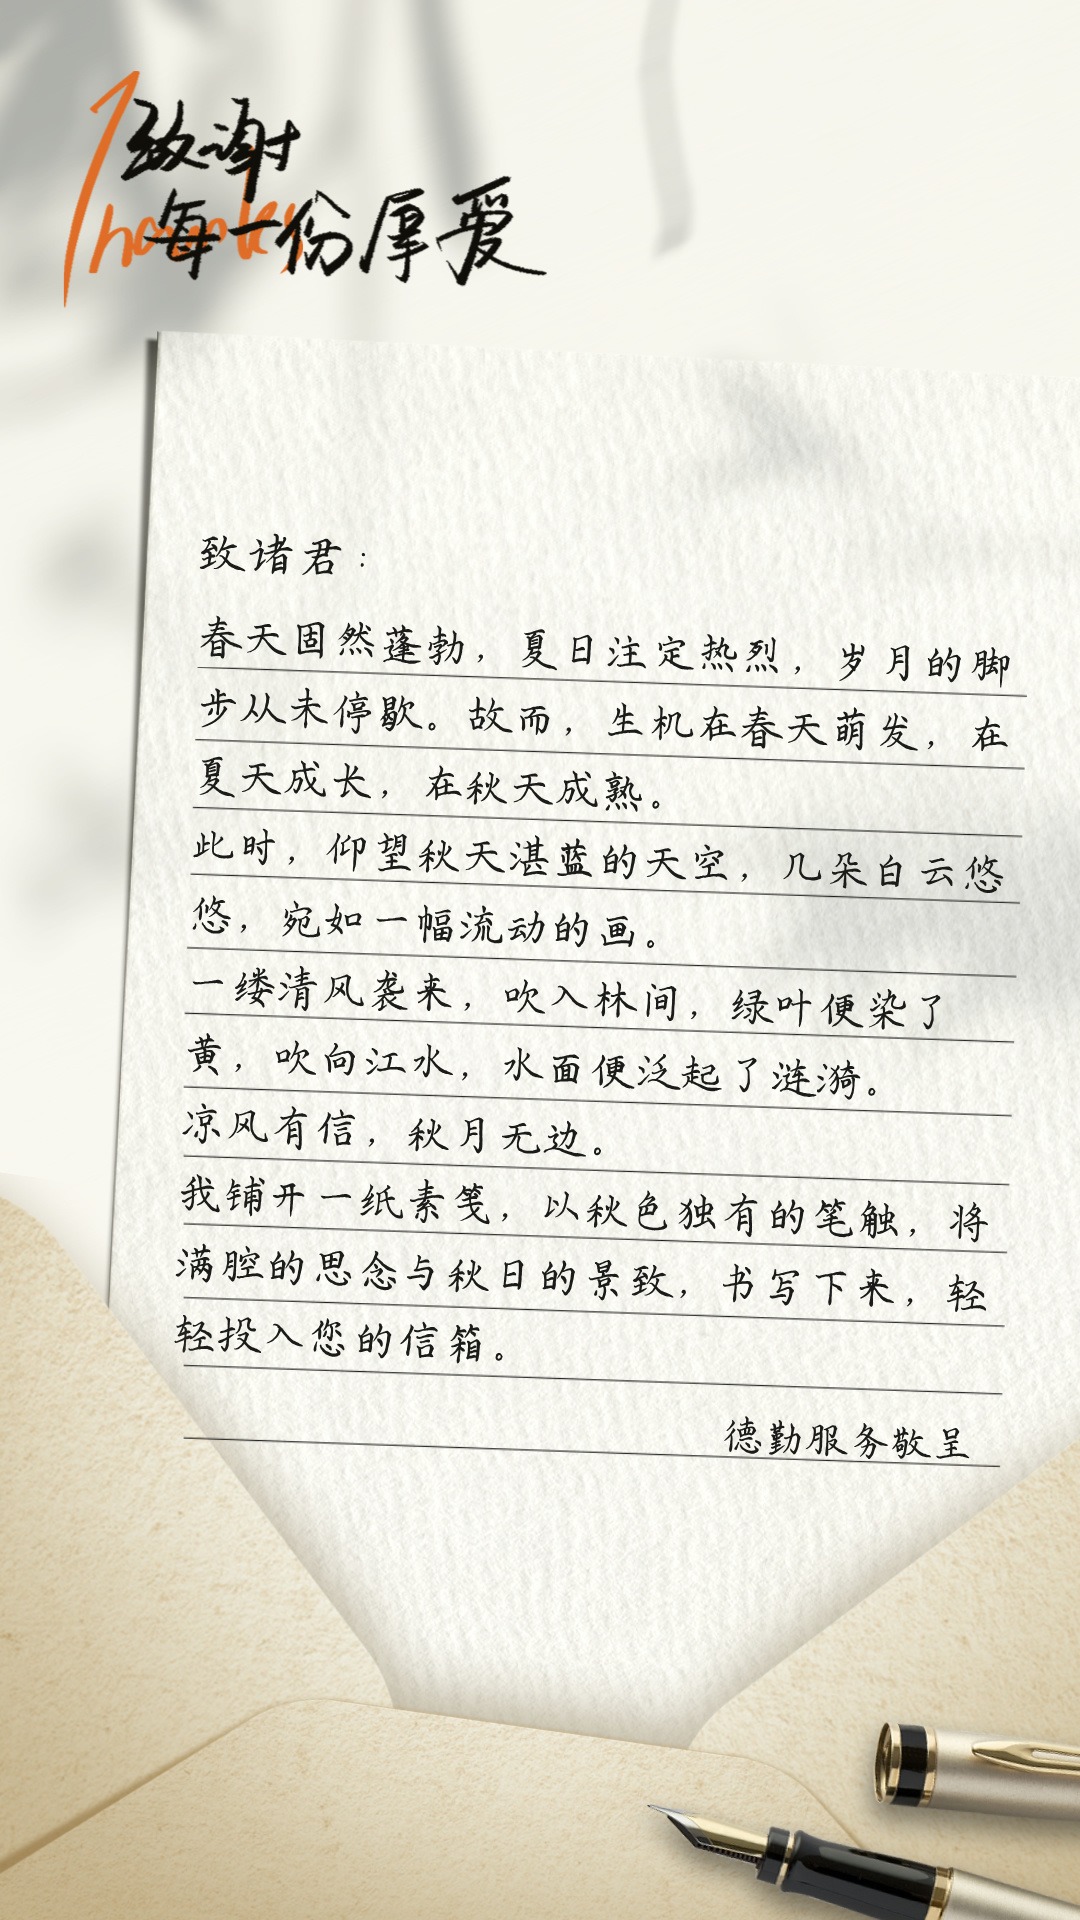 致谢
每一份厚爱
Thanks
致诸君：
春天固然蓬勃，夏日注定热烈，岁月的脚
步从未停歇。故而，生机在春天萌发，在
夏天成长，在秋天成熟。
此时，仰望秋天湛蓝的天空，几朵白云悠
悠，宛如一幅流动的画。
一缕清风袭来，吹入林间，绿叶便染了
黄，吹向江水，水面便泛起了涟漪。
凉风有信，秋月无边。
我铺开一纸素笺，以秋色独有的笔触，将
满腔的思念与秋日的景致，书写下来，轻
轻投入您的信箱。
德勤服务敬呈